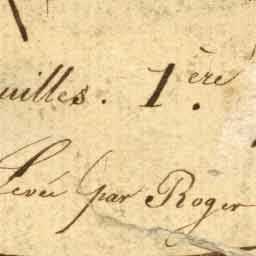 uilles. 1.ère
Levée par Roger